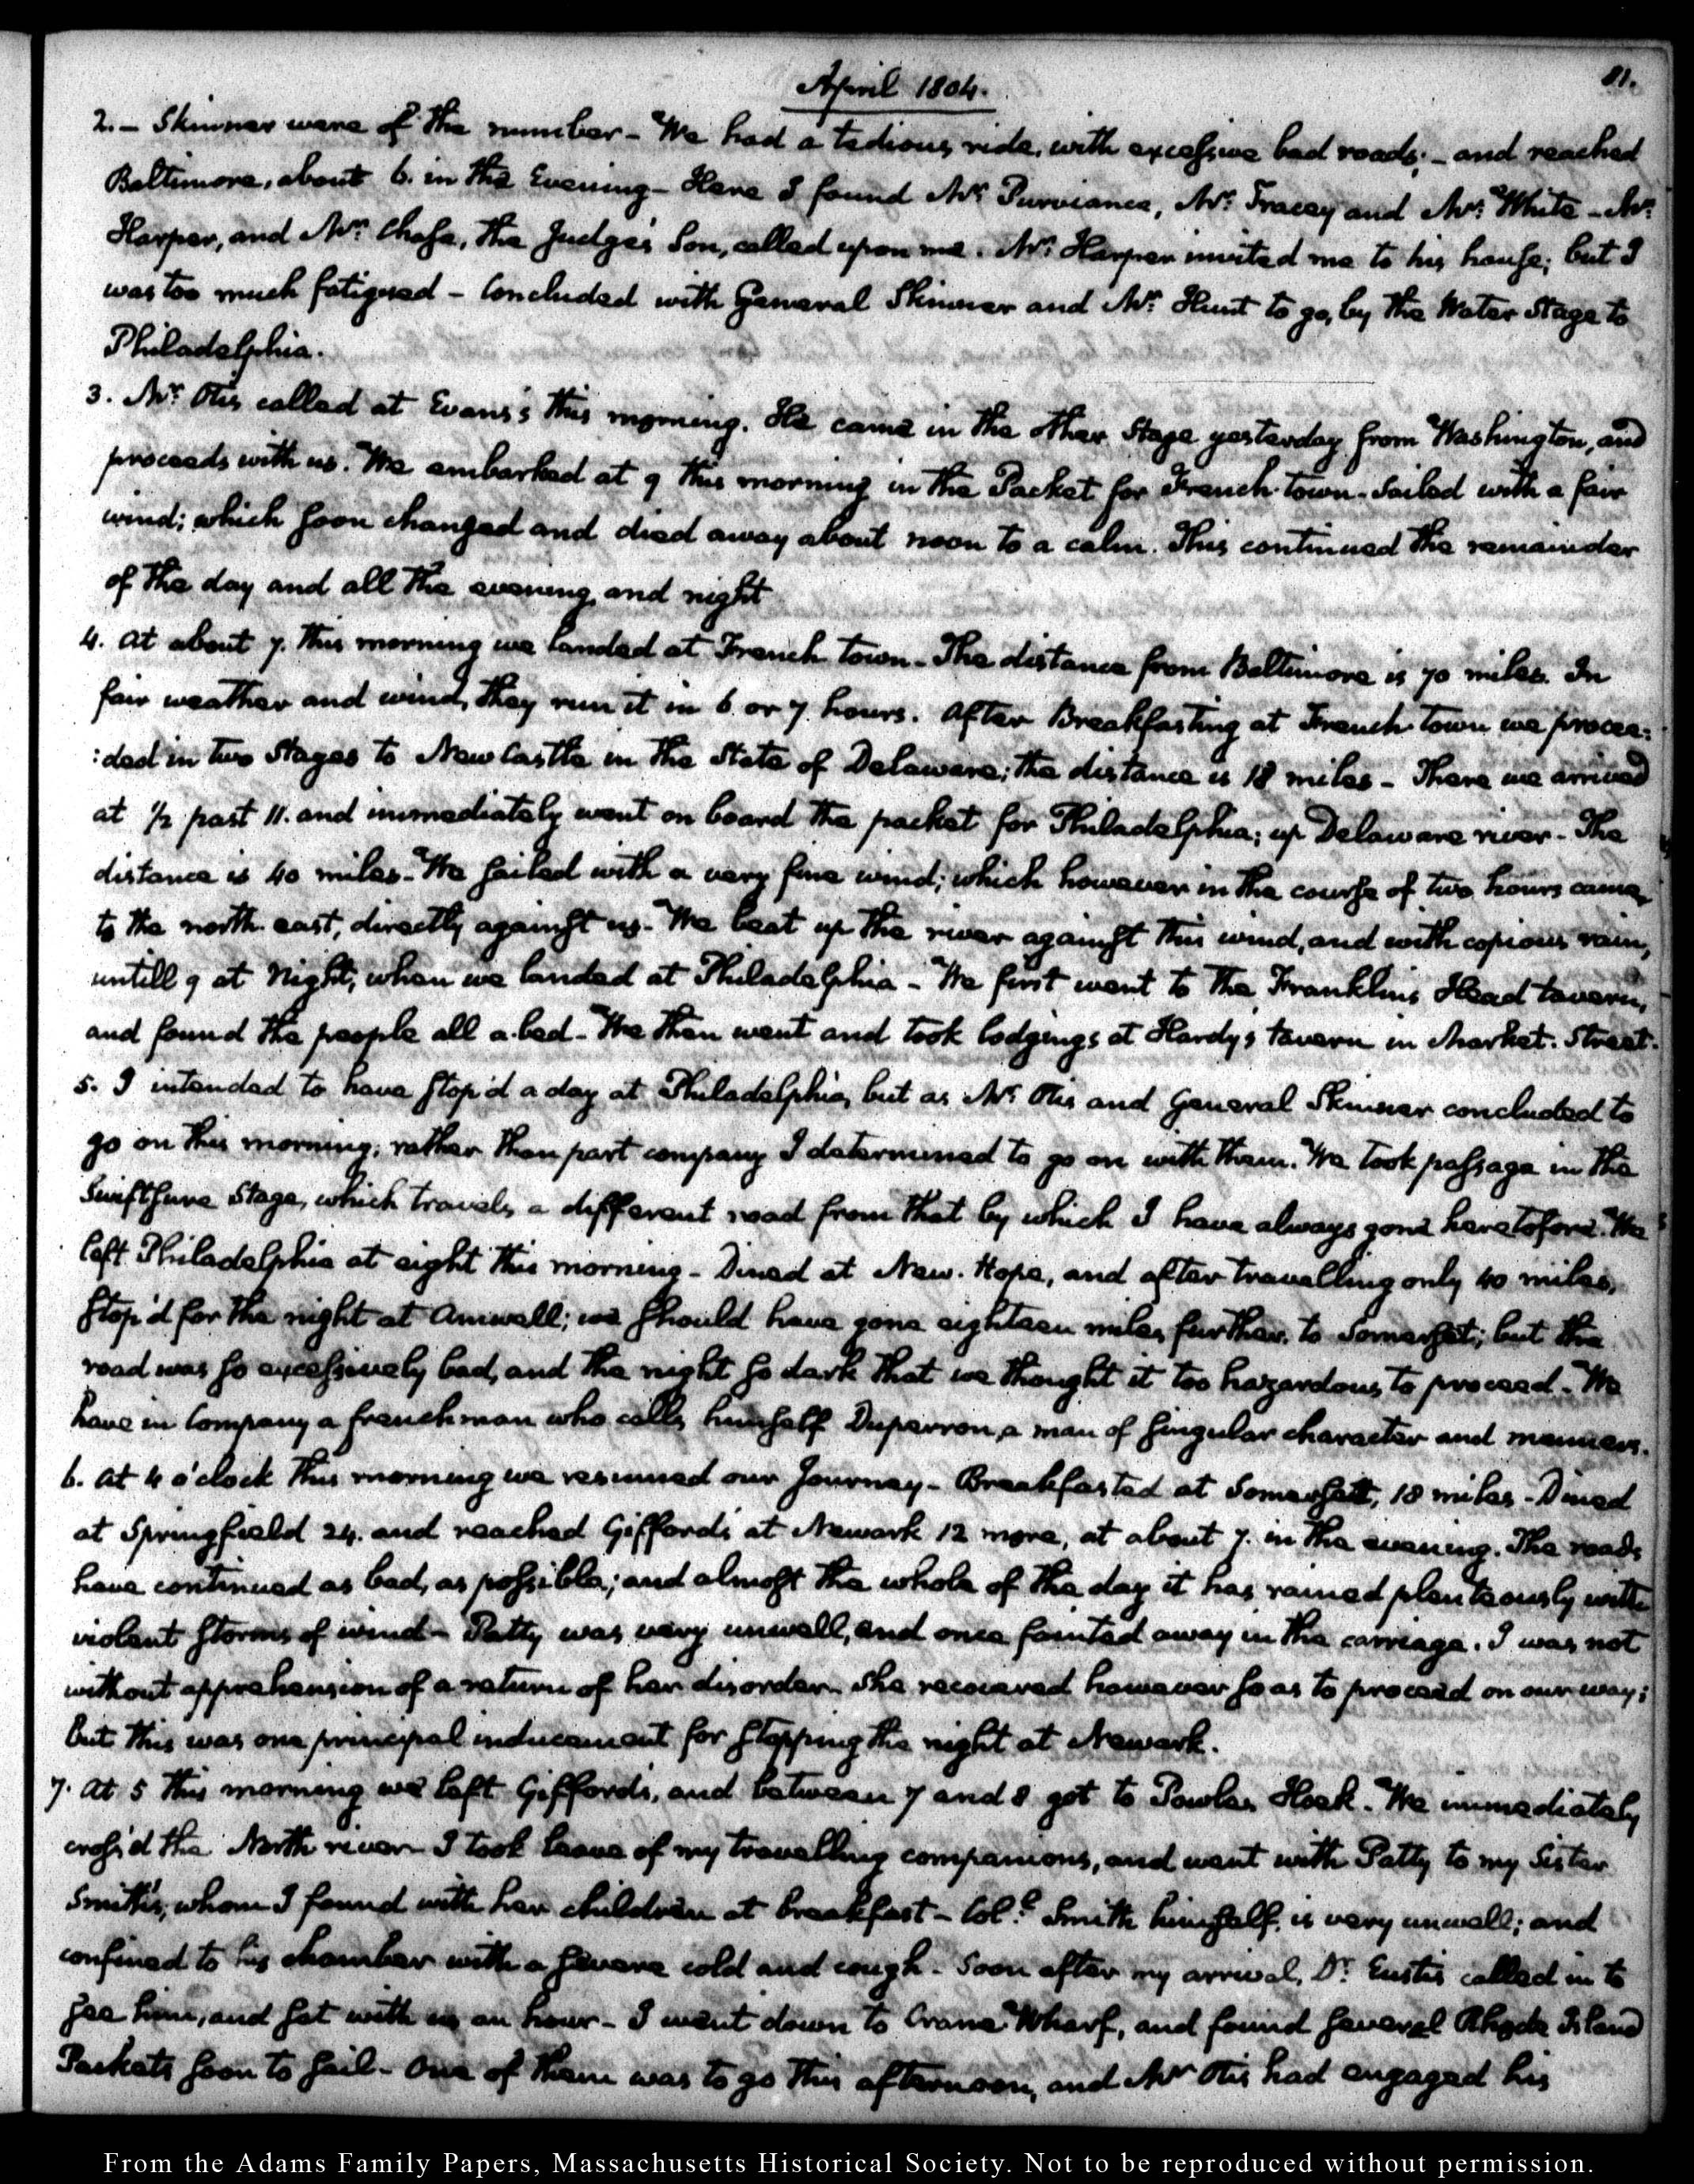 April 1804.
81.
2. – Skinner were of the number – We had a tedious ride, with excessive bad roads; – and reached
Baltimore, about 6. in the Evening – Here I found Mr. Purviance, Mr. Tracey and Mr. White – Mr.
Harper, and Mr. Chase, the Judge's Son, called upon me. Mr. Harper invited me to his house; but I
was too much fatigued – Concluded with General Skinner and Mr. Hunt to go, by the Water Stage to
Philadelphia.
3. Mr. Otis called at Evans's this morning. He came in the other Stage yesterday from Washington, and
proceeds with us. We embarked at 9 this morning in the Packet for French-town – Sailed with a fair
wind; which soon changed and died away about noon to a calm. This continued the remainder
of the day and all the evening and night
4. At about 7. this morning we landed at French town – The distance from Baltimore is 70 miles. In
fair weather and wind, they run it in 6 or 7 hours. After Breakfasting at French town we procee:
:ded in two Stages to New Castle in the State of Delaware; the distance is 18 miles – There we arrived
at ½ past 11. and immediately went on board the packet for Philadelphia; up Delaware river – The
distance is 40 miles – We sailed with a very fine wind; which however in the course of two hours came
to the north east, directly against us – We beat up the river against this wind, and with copious rain,
untill 9 at Night, when we landed at Philadelphia – We first went to the Franklins Head tavern,
and found the people all a-bed – We then went and took lodgings at Hardy's tavern in Market-Street.
5. I intended to have stop'd a day at Philadelphia, but as Mr. Otis and General Skinner concluded to
go on this morning, rather than part company I determined to go on with them. We took passage in the
Swiftsure Stage, which travels a different road from that by which I have always gone heretofore. We
left Philadelphia at eight this morning – Dined at New-Hope, and after travelling only 40 miles,
stop'd for the night at Amwell; we should have gone eighteen miles further, to Somerset; but the
road was so excessively bad, and the night so dark that we thought it too hazardous to proceed – We
have in Company a frenchman who calls himself Duperron, a man of singular character and manners.
6. At 4 o'clock this morning we resumed our Journey – Breakfasted at Somersett, 18 miles – Dined
at Springfield 24. and reached Gifford's at Newark 12 more, at about 7. in the evening. The roads
have continued as bad, as possible; and almost the whole of the day it has rained plenteously with
violent storms of wind – Patty was very unwell, and once fainted away in the carriage. I was not
without apprehension of a return of her disorder – She recovered however so as to proceed on our way;
but this was one principal inducement for stopping the night at Newark.
7. At 5 this morning we left Gifford's, and between 7 and 8 got to Powles Hook. We immediately
cross'd the North river – I took leave of my travelling companions, and went with Patty to my Sister
Smith's, whom I found with her children at breakfast – Col.l Smith himself, is very unwell; and
confined to his chamber with a severe cold and cough – Soon after my arrival, Dr. Eustis called in to
see him, and sat with us an hour – I went down to Crane Wharf, and found several Rhode Island
Packets soon to sail – One of them was to go this afternoon, and Mr Otis had engaged his
From the Adams Family Papers, Massachusetts Historical Society. Not to be reproduced without permission.